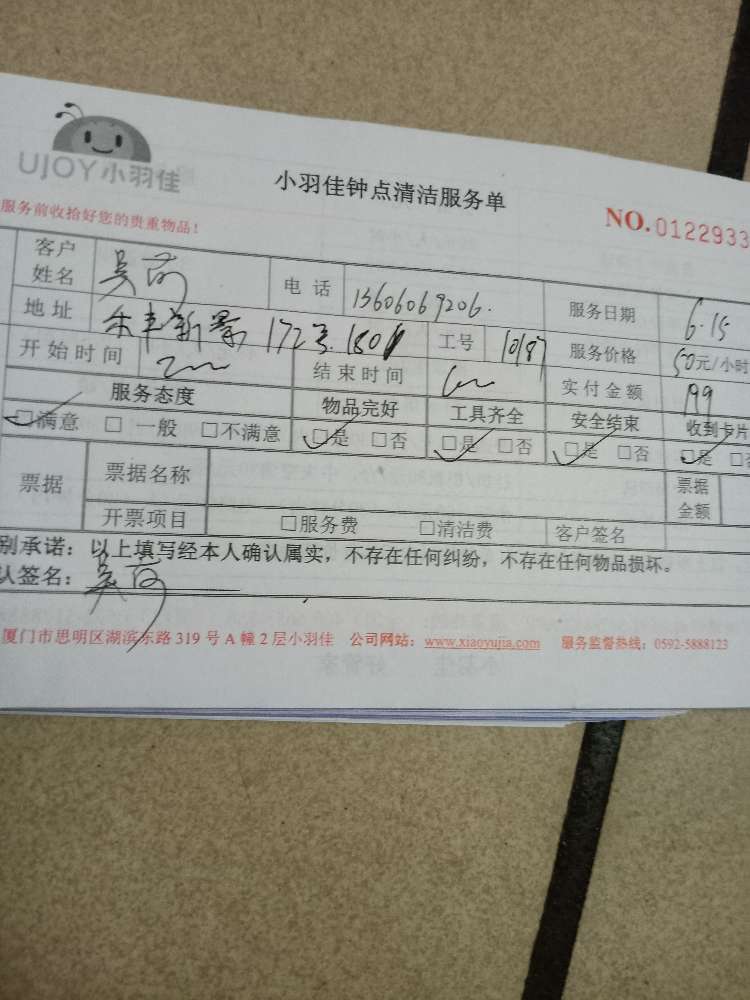 UJOY小羽佳
小羽佳钟点清洁服务单
NO.0122933
服务前收拾好您的贵重物品!
客户姓名 吴 电话 13606069206. 服务日期 6.15
地址 禾丰新景 172号.1801 工号 10187 服务价格 50元/小时
开始时间 2:00 结束时间 6:00 实付金额 199
服务态度 物品完好 工具齐全 安全结束 收到卡片
□满意 □一般 □不满意 □是 □否 □是 □否 □是 □否 □是 □否
票据 票据名称 票据金额
开票项目 □服务费 □清洁费 客户签名
别承诺:以上填写经本人确认属实,不存在任何纠纷,不存在任何物品损坏。
认签名:吴
厦门市思明区湖滨东路 319 号 A 幢 2 层小羽佳 公司网站:www.xiaoyujia.com 服务监督热线:0592-5888123